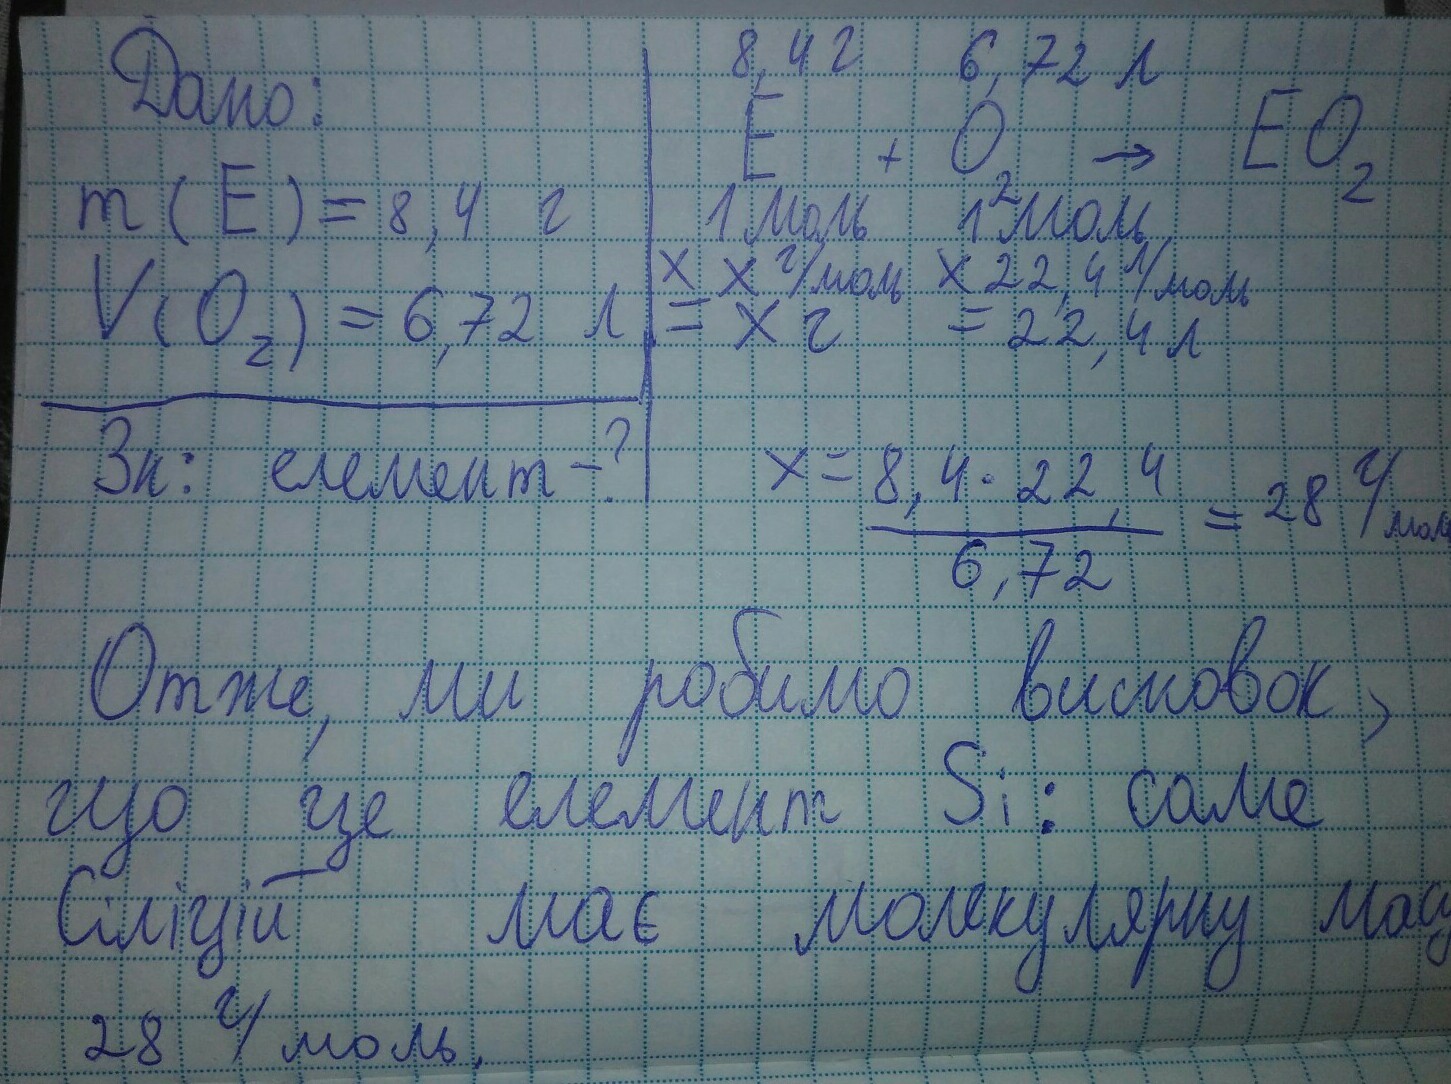 Дано:
m(E) = 8,4 г
V(O₂) = 6,72 л
Зн: елемент-?
8,4 г 6,72 л
E + O₂ → EO₂
1 моль 1 моль
x x г/моль x 22,4 л/моль
= x г = 22,4 л
x = 8,4 · 22,4 / 6,72 = 28 г/моль
Отже, ми робимо висновок,
що це елемент Si: саме
Сіліцій має молекулярну масу
28 г/моль.